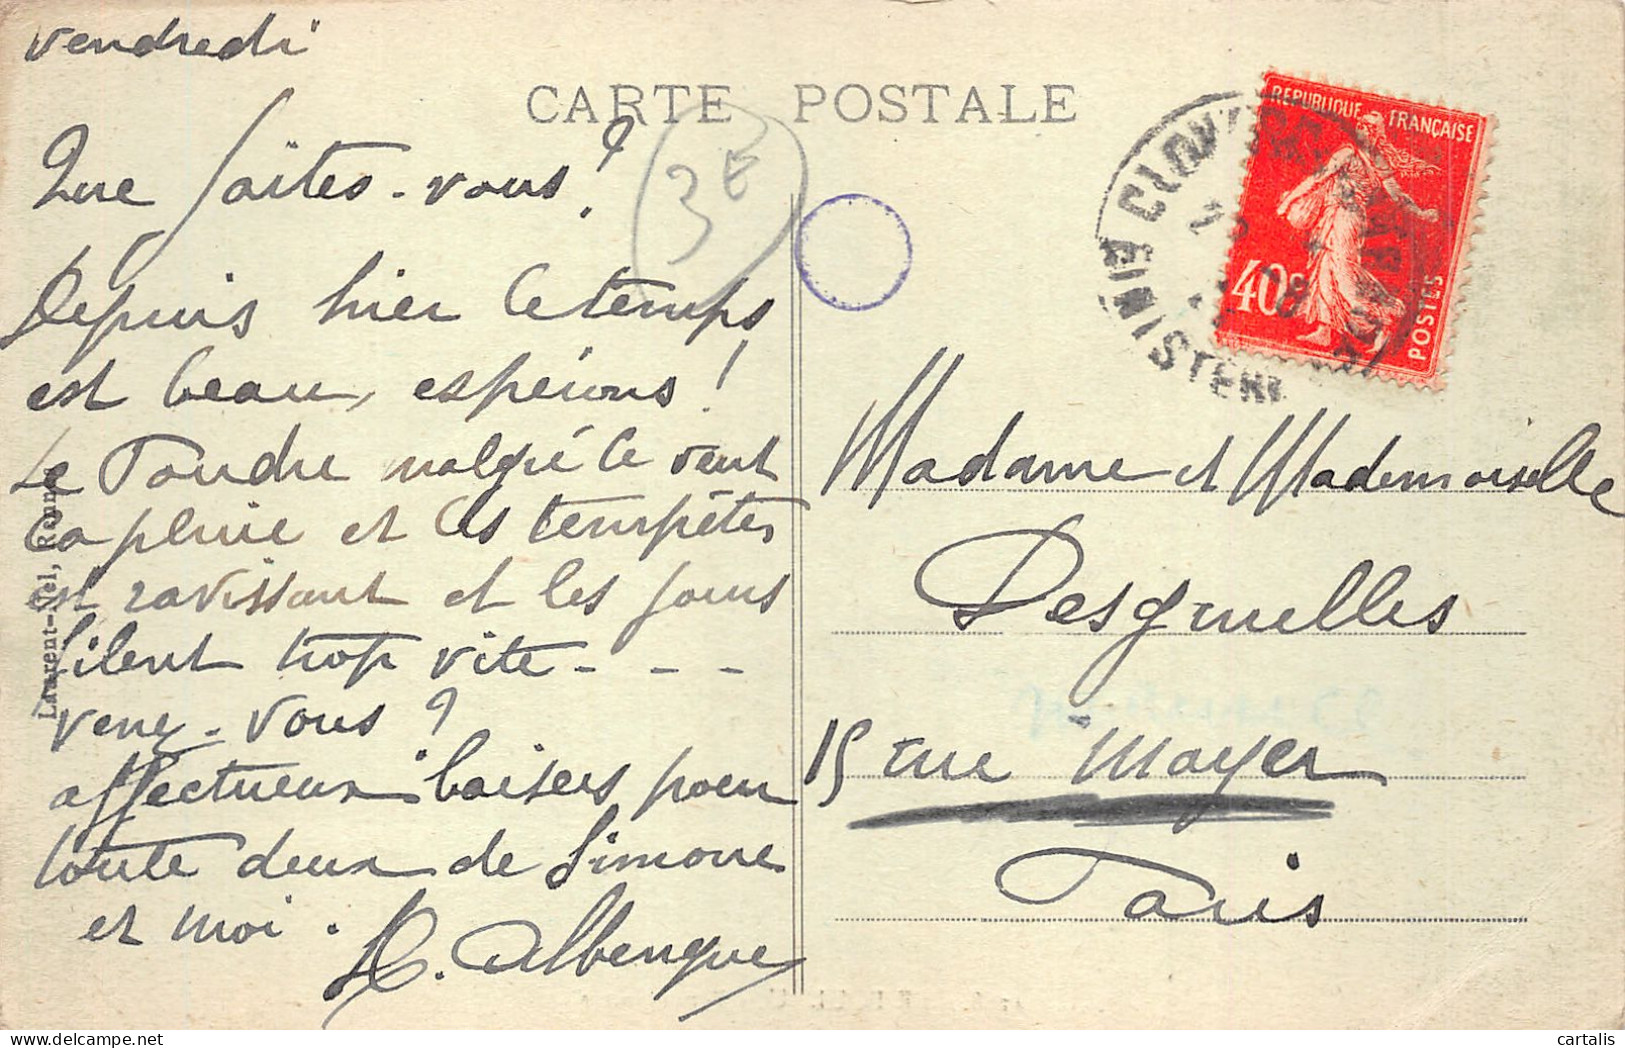 vendredi
CARTE POSTALE
Que faites-vous?
Depuis hier le temps
est beau, espérons!
Le Pouldu malgré le vent
la pluie et les tempêtes
est ravissant et les jours
filent trop vite - - -
venez-vous?
affectueux baisers pour
toute deux de Simone
et moi.
Albengue
Laurent-Nel, Rennes
3E
REPUBLIQUE FRANÇAISE
40c
POSTES
FINISTERE
Madame et Mademoiselle
Desgruelles
15 rue Mayer
Paris
cartalis